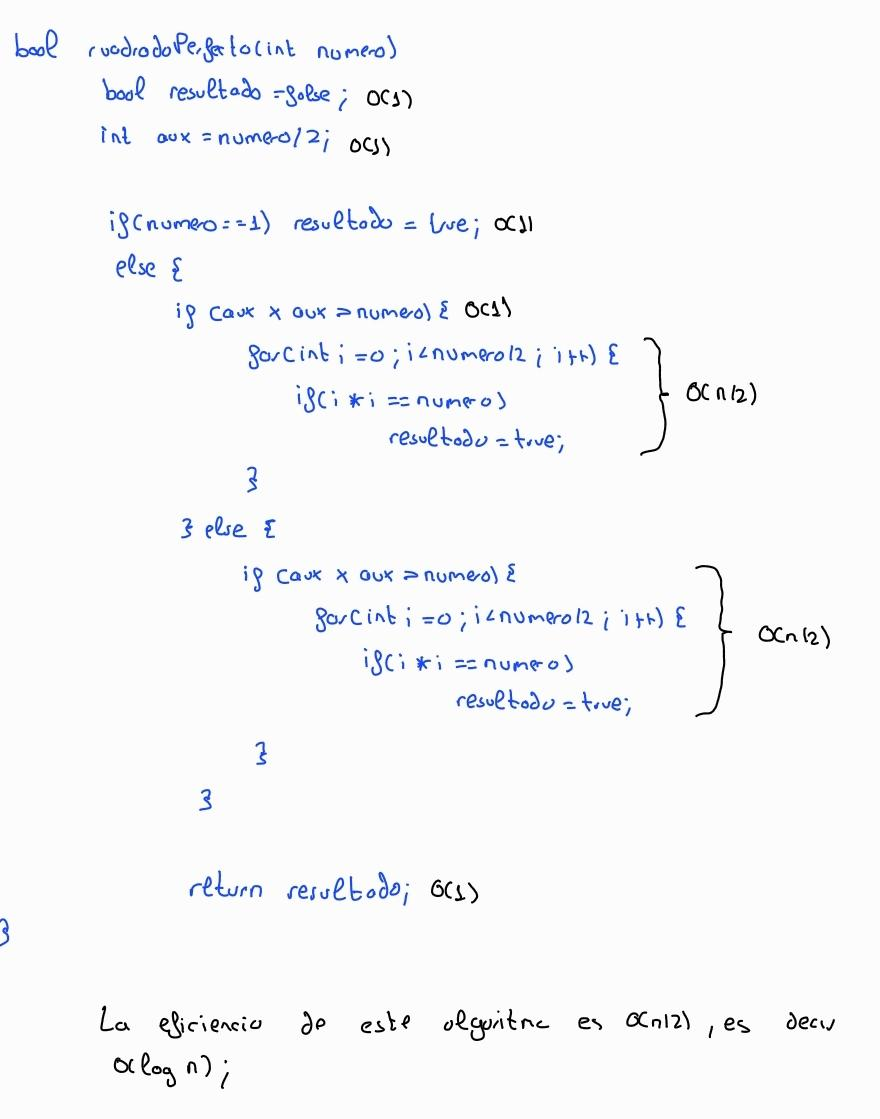 bool cuadradoPerfecto(int numero)
bool resultado = false; O(1)
int aux = numero/2; O(1)
if(numero==1) resultado = true; O(1)
else {
if (aux x aux > numero) { O(1)
for(int i=0; i<numero/2; i++) {
if(i * i == numero) O(n/2)
resultado = true;
}
} else {
if (aux x aux > numero) {
for(int i=0; i<numero/2; i++) { O(n/2)
if(i * i == numero)
resultado = true;
}
}
return resultado; O(1)
}
La eficiencia de este algoritmo es O(n/2), es decir
O(log n);